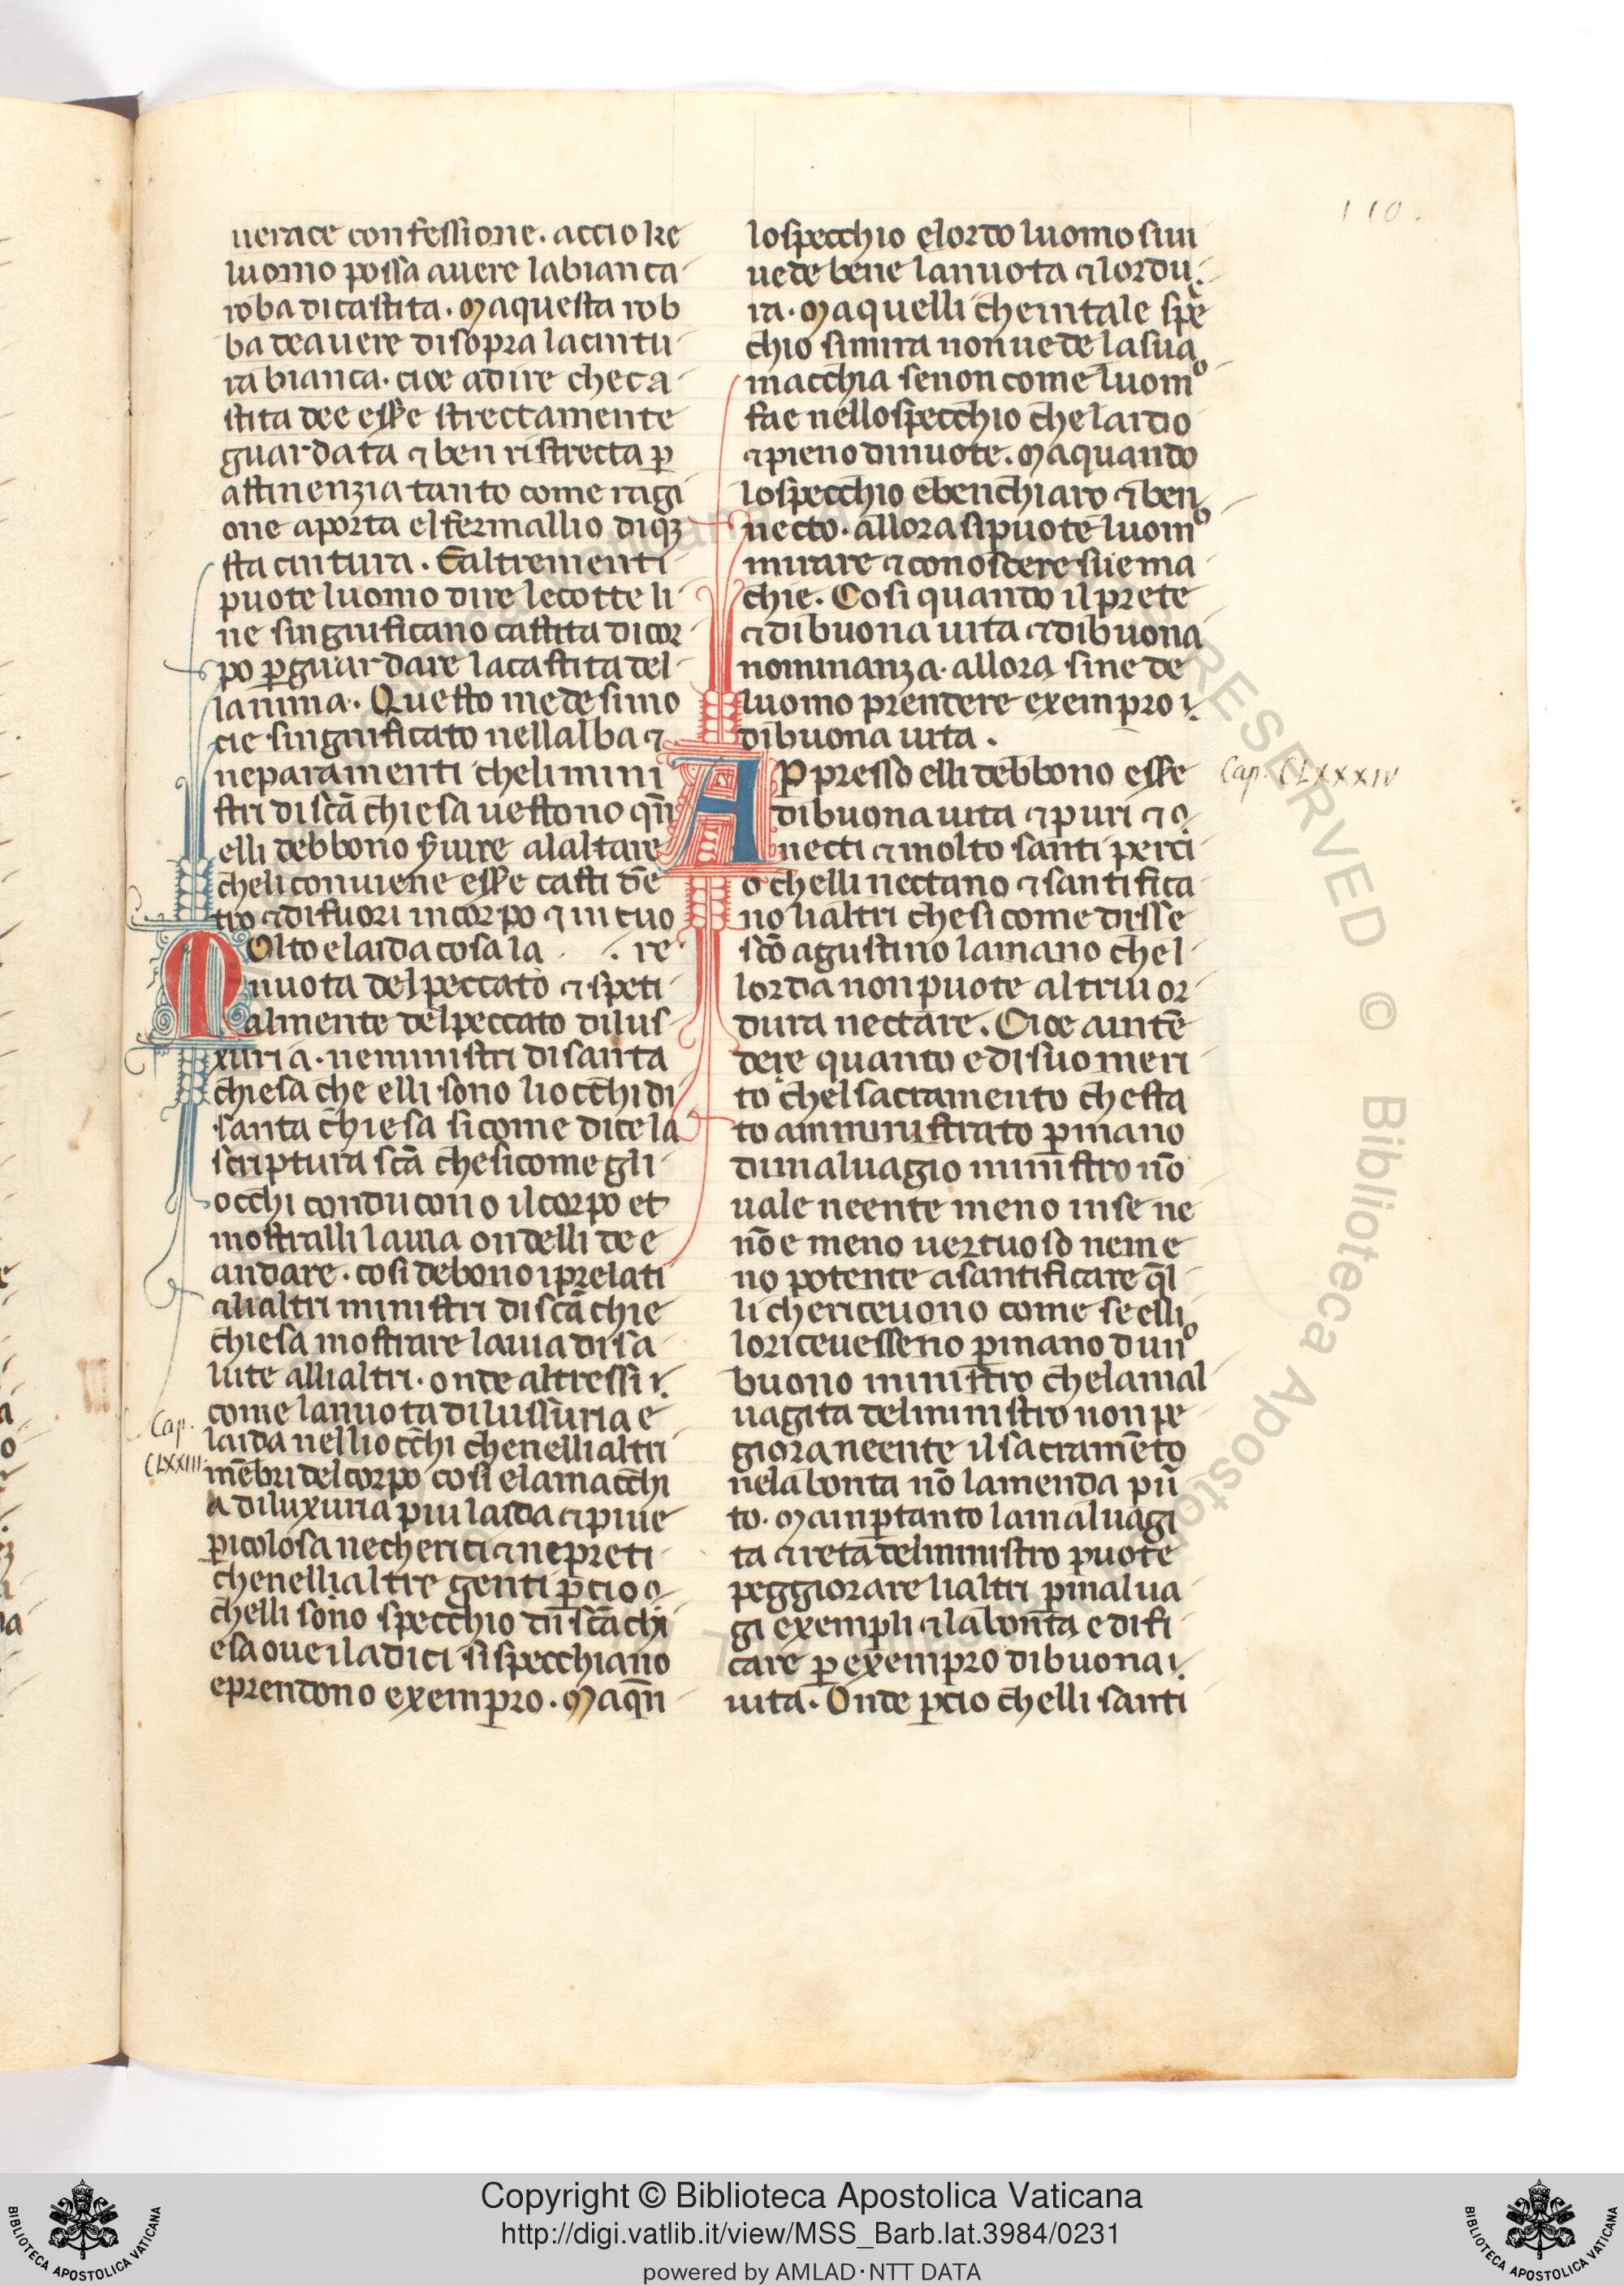 110.
uerace confessione. accio ke
luomo possa auere labianca
roba dicastita. Maquesta rob
ba deauere disopra lacintu
ra bianca. cioe adire checa
stita dee esse strectamente
guardata ⁊ ben ristrecta ꝑ
astinenzia tanto come ragi
one aporta el fermallio diqꝫ
sta cintura. Ealtrementi
puote luomo dire lecotte li
ne singnificano castita dicor
po ꝑguardare lacastita del
lanima. Questo medesimo
eie singnificato nellalba ⁊
neparamenti chelimini
stri discā chiesa uestono qn̄
elli debbono s̄uire alaltare
cheli conuiene esse casti dē
tro ⁊ difuori incorpo ⁊ in cuo
Molto elaida cosa la . re
nuota delpeccato ⁊ speti
almente delpeccato dilus
xuria. neministri disanta
chiesa che elli sono liocchi di
santa chiesa sicome dice la
scriptura scā chesicome gli
occhi conducono ilcorpo et
mostralli lauia ondelli dee
andare. cosi debono iprelati
alialtri ministri discā chie
chiesa mostrare lauia disa
lute allialtri. onde altressi
come lanuota dilussuria e
Cap. CLXXIII
laida nelliocchi chenellialtri
mēbri delcorpo cosi elamacchi
a diluxuria piu laida ⁊ piue
ꝑicolosa necherici ⁊ nepreti
chenellialtre genti ꝑcio
chelli sono specchio dn̄ scā chi
esa oueiladici sispecchiano
eprendono exempro. Maqn̄
lospecchio elordo luomo siui
uede bene lanuota ⁊ lordu
ra. Maquelli cheintale spe
chio simira nonuede lasua
macchia senon come luomo
fae nellospecchio chelaido
⁊ pieno dinuote. Maquando
lospecchio ebenchiaro ⁊ ben
necto. allora sipuote luomo
mirare ⁊ conoscere sue ma
chie. Cosi quando ilprete
⁊ dibuona uita ⁊ dibuona
nominanza. allora sine de
luomo prendere exempro
dibuona uita.
Appresso elli debbono esse
Cap. CLXXXIV
dibuona uita ⁊ puri ⁊ o
necti ⁊ molto santi perci
o chelli nectano ⁊ santifica
no lialtri chesicome disse
scō agustino lamano chel
lorda nonpuote altrui or
dura nectare. Cioe aintē
dere quanto edisuo meri
to chelsacramento chesta
to aministrato ꝑmano
dimaluagio ministro nō
uale neente meno inse ne
nōe meno uertuoso neme
no potente asantificare q̄l
li chericeuono come seelli
loriceuesseno ꝑmano duno
buono ministro chelamal
uagita delministro nonpe
giora neente il sacramēto
nela bonta nō lamenda pū
to. Mainꝑtanto lamaluagi
ta ⁊ reta delministro puote
peggiorare lialtri ꝑmalua
gi exempli ⁊ labonta edifi
care ꝑ exempro dibuona
uita. Onde ꝑcio chelli santi
Copyright © Biblioteca Apostolica Vaticana
http://digi.vatlib.it/view/MSS_Barb.lat.3984/0231
powered by AMLAD·NTT DATA